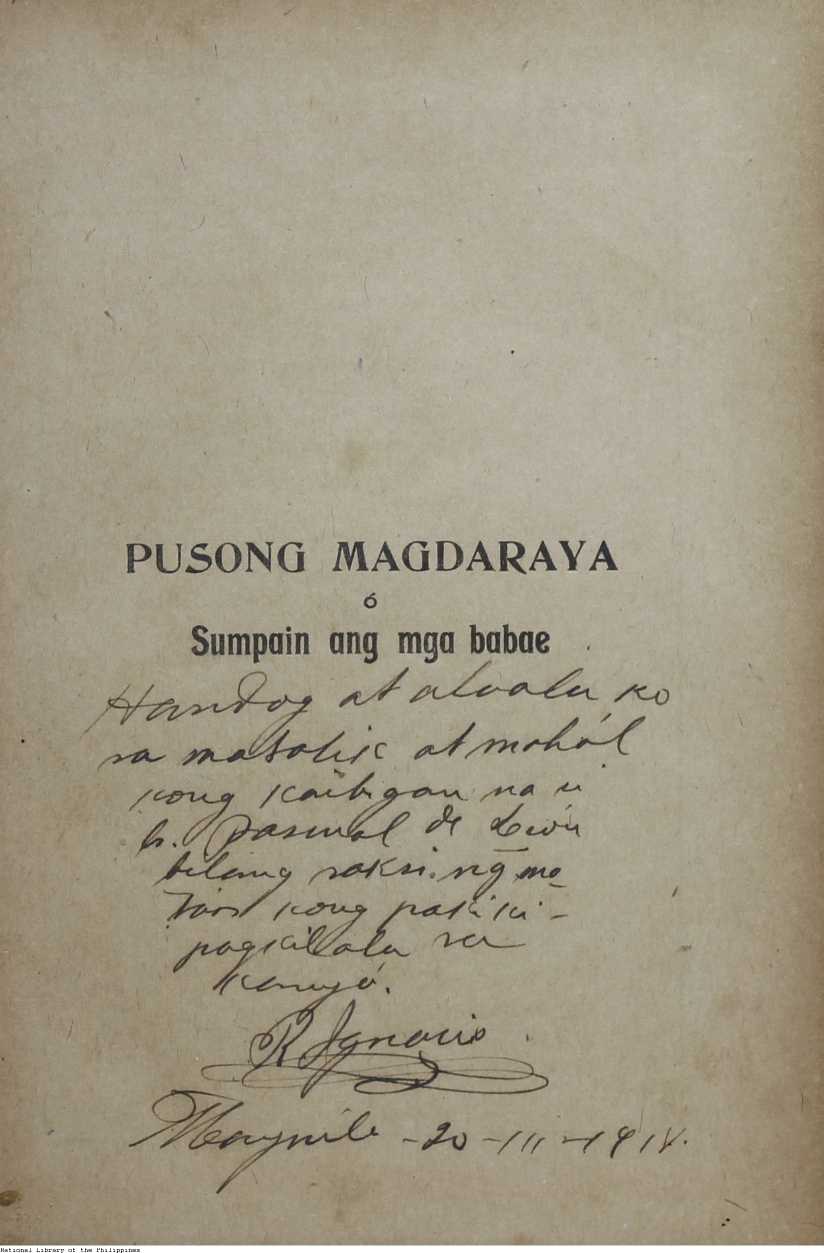 PUSONG MAGDARAYA
ó
Sumpain ang mga babae
Handog at alaala ko
sa matalik at mahál
kong kaibigan na si
G. Pascual de Leon
bilang saksi ng ma-
kong pakiki-
pagkilala sa
kanyá.
R Ignacio
Maynila -20-III-
National Library of the Philippines